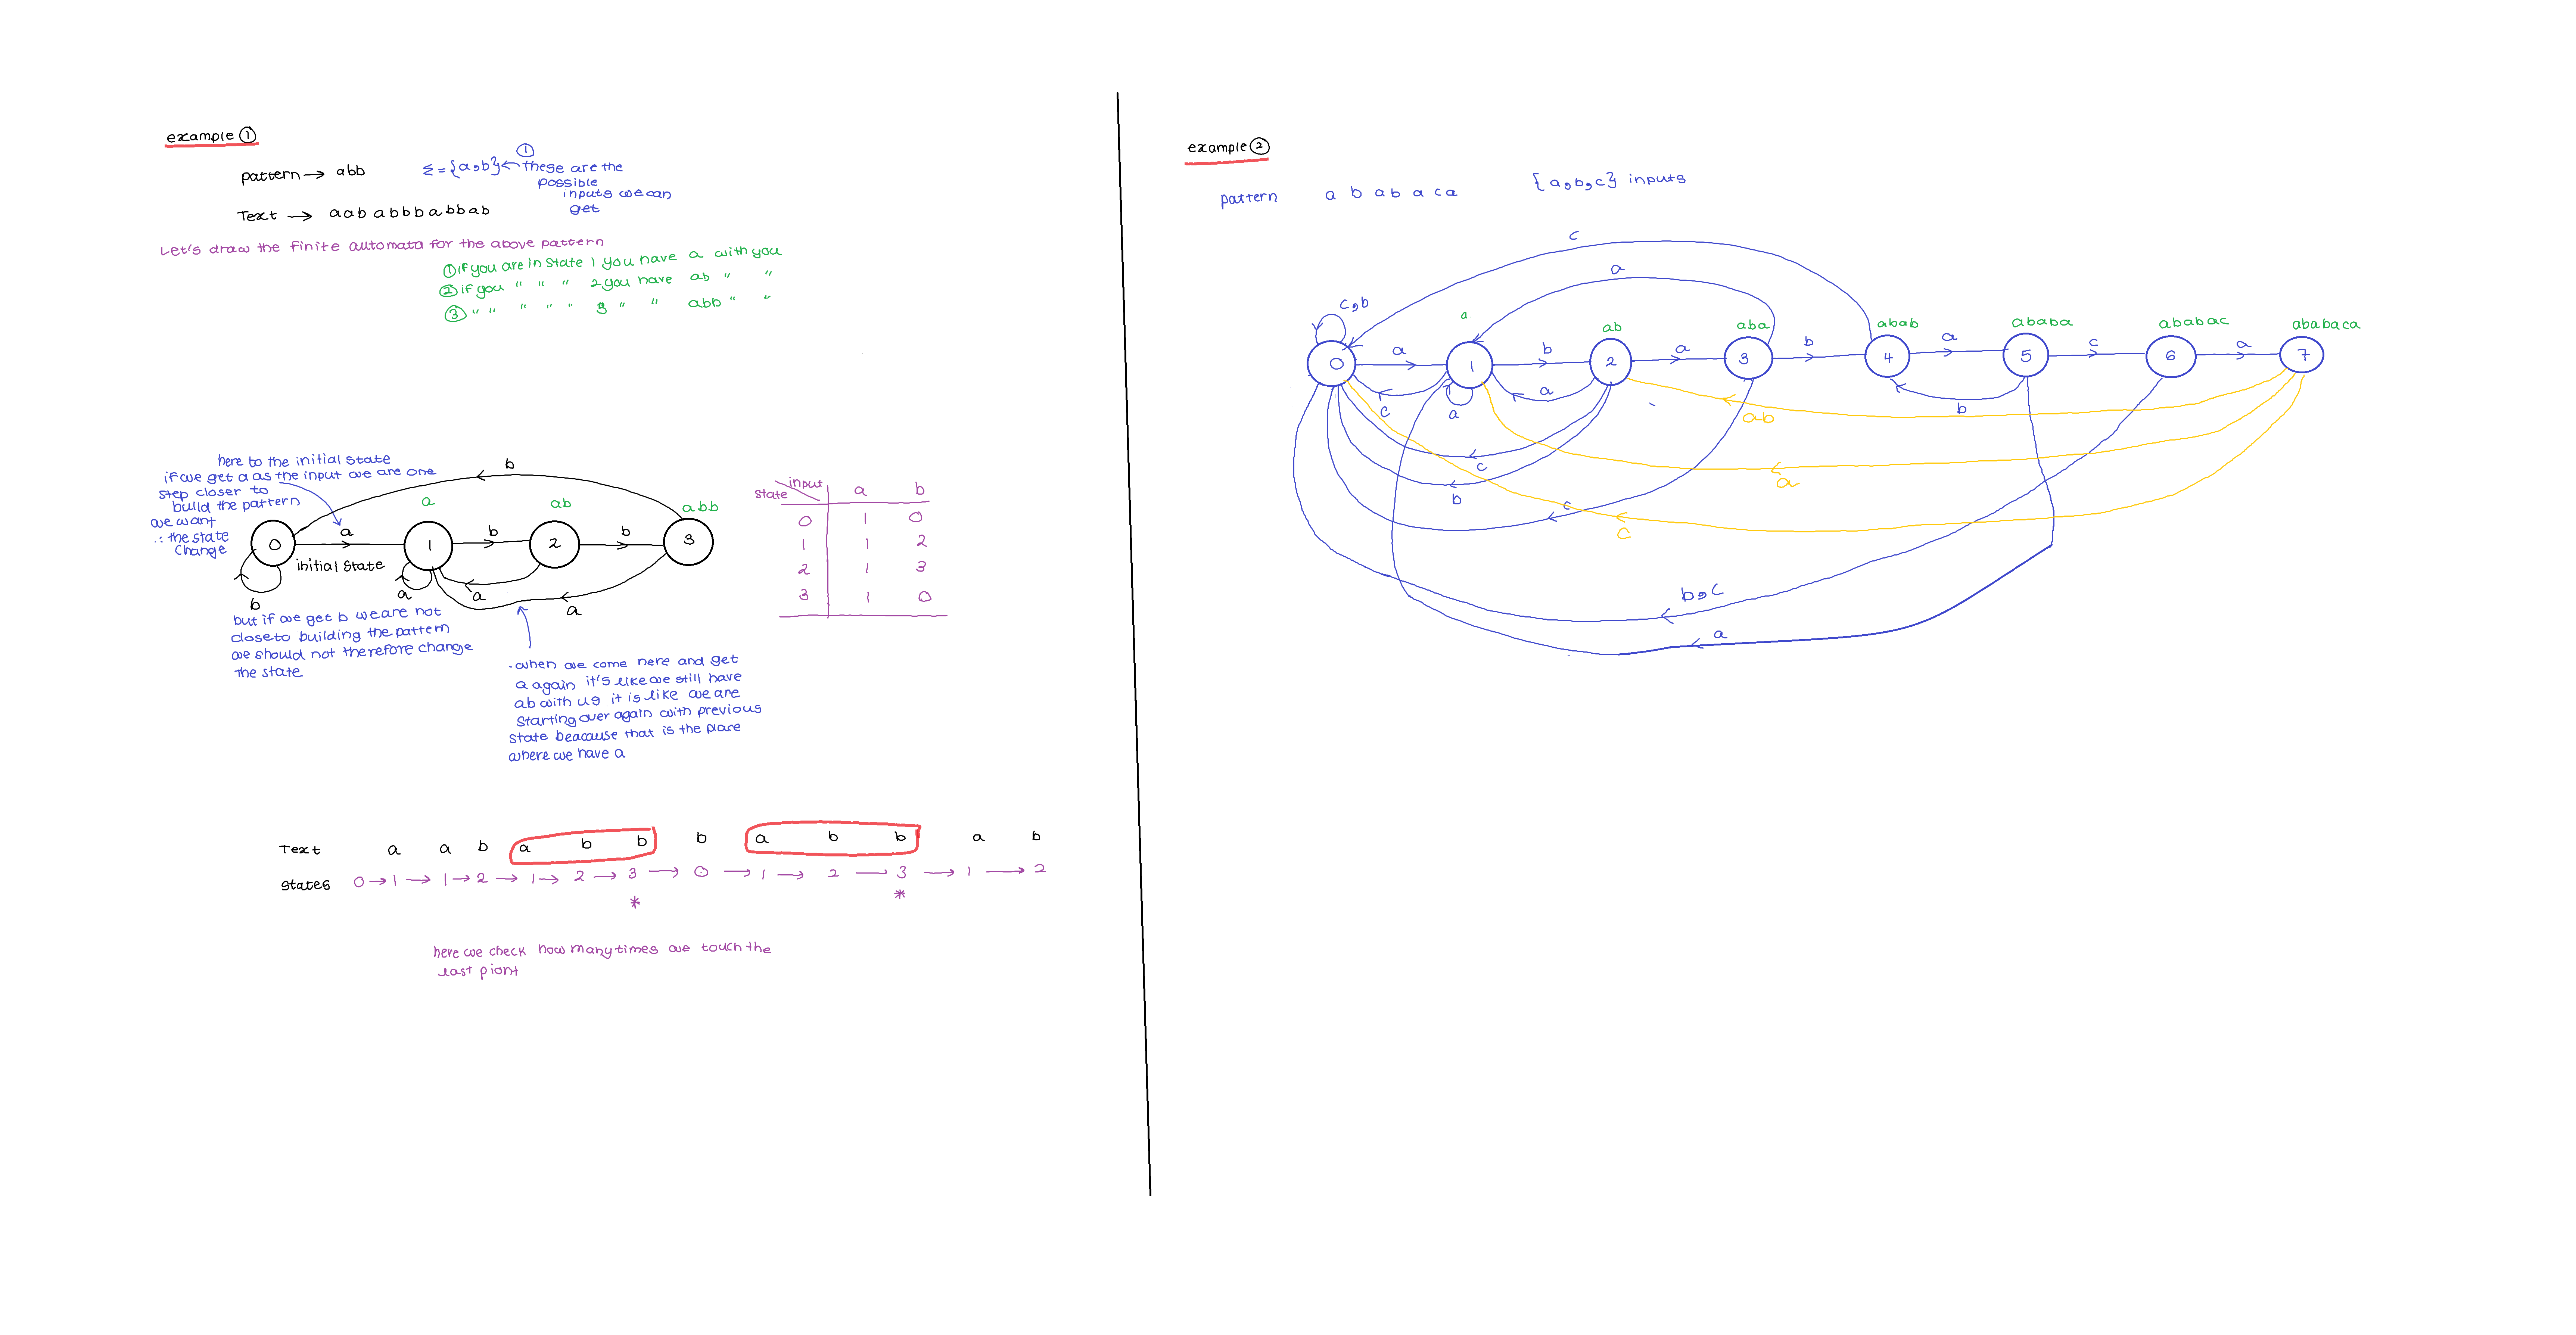 example ①
pattern → abb
Σ = {a,b} ← these are the
①
possible
inputs we can
get
Text → aababbbabbab
Let's draw the finite automata for the above pattern
① if you are in state 1 you have a with you
② if you " " " 2 you have ab " "
③ " " " " " 3 " " abb " "
here to the initial state
if we get a as the input we are one
step closer to
build the pattern
we want
∴ the state
change
b
a
ab
abb
0
a
1
b
2
b
3
initial state
b
a
a
a
but if we get b we are not
close to building the pattern
we should not therefore change
the state
- when we come here and get
a again it's like we still have
ab with us it is like we are
starting over again with previous
state beacause that is the place
where we have a
input
state a b
0 1 0
1 1 2
2 1 3
3 1 0
Text a a b a b b b a b b a b
states 0 → 1 → 1 → 2 → 1 → 2 → 3 → 0 → 1 → 2 → 3 → 1 → 2
* *
here we check how many times we touch the
last piont
example ②
pattern a b a b a c a {a,b,c} inputs
c
a
c,b
a ab aba abab ababa ababac ababaca
0 a 1 b 2 a 3 b 4 a 5 c 6 a 7
c
a
a
b
ab
c
a
b
c
c
b,c
a